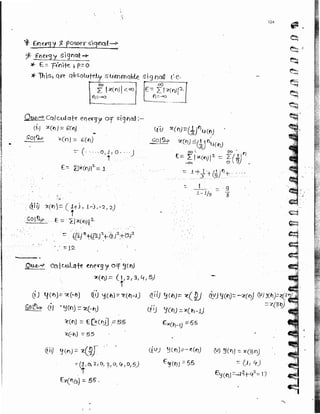 124
Energy & power signal →
* Energy signal →
* E = Finite ; P=0
* This, are absolutely summable signal i.e.
∞ Σ n=-∞ |x(n)| < ∞ E = ∞ Σ n=-∞ |x(n)|²
Que→ Calculate energy of signal:-
(i) x(n) = δ(n)
Solⁿ x(n) = δ(n)
= {.....0, 1, 0.....}
↑
E = Σ|x(n)|² = 1
(ii) x(n) =
Solⁿ
(iii) x(n) = { 1+j, 1-j, -2, 2}
Solⁿ E = Σ|x(n)|²
= (√2)²+(√2)²+(2)²+(2)²
= 12
Que→ calculate energy of y(n)
x(n) = {1, 2, 3, 4, 5}
↑
(i) y(n) = x(-n) (ii) y(n) = x(n-1) (iii) y(n) = x(n/2) (iv) y(n) = -x(n)
Solⁿ (i) y(n) = x(-n)
x(n) = E[x(n)] = 55
x(-n) = 55
(ii) y(n) = x(n-1)
Ex(n-1) = 55
(iii) y(n) = x(n/2)
= {1, 0, 2, 0, 3, 0, 4, 0, 5}
↑
Ex(n/2) = 55.
(iv) y(n) = -x(n)
Ey(n) = 55
(v) y(n) = x(3n)
= {1, 4}
Ey(n) = 1²+4² = 17